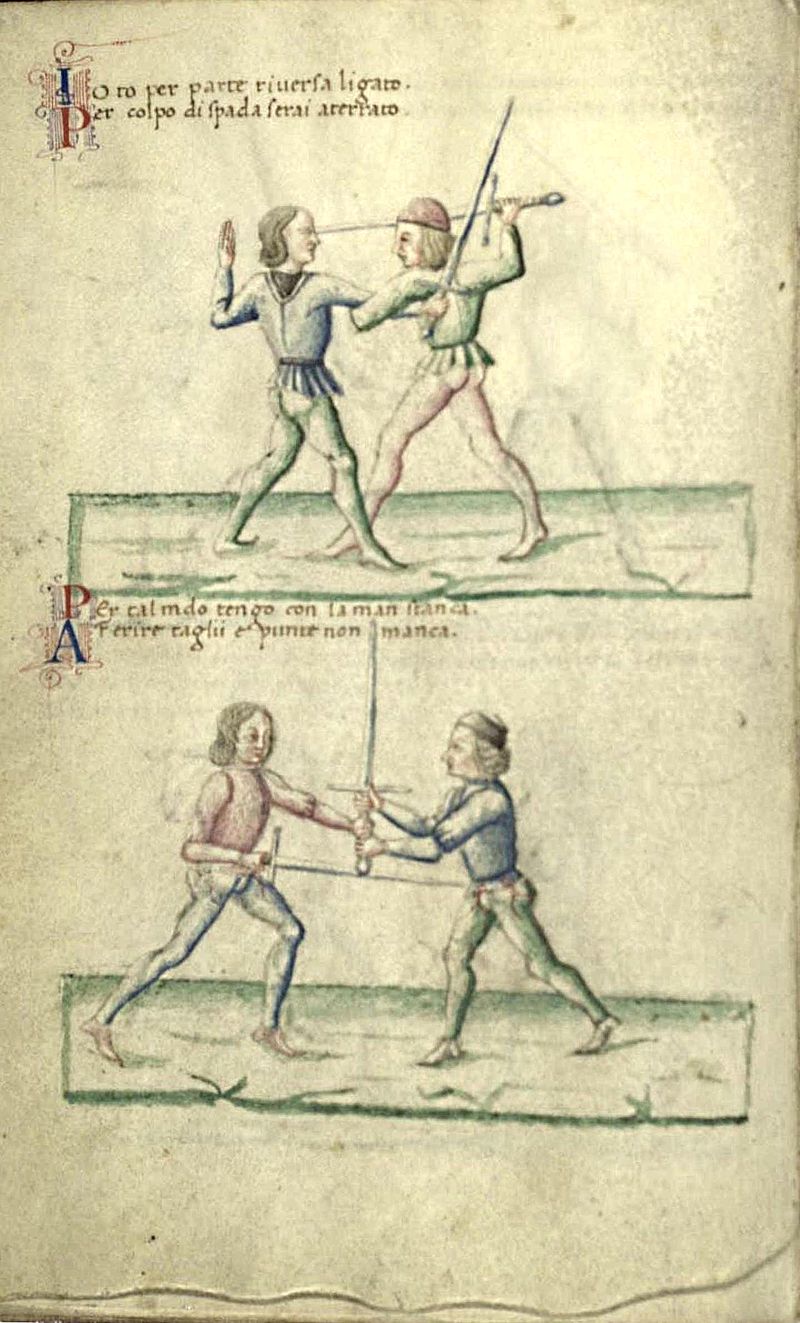 Io to per parte riversa ligato.
Per colpo di spada serai aterrato.
Per tal mdo tengo con la man stanca.
A ferire taglii e punte non manca.